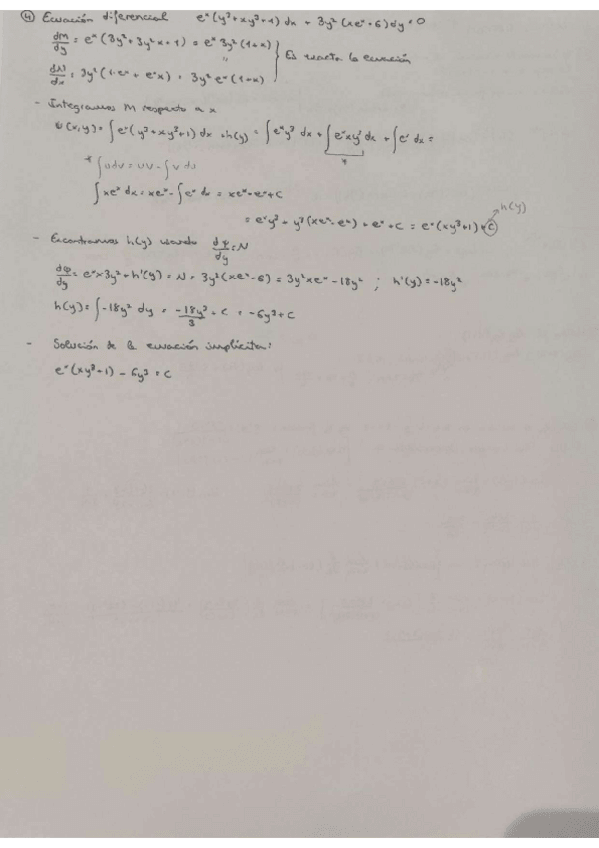 ④ Ecuación diferencial eˣ(y³+xy³+1)dx + 3y²(xeˣ-6)dy=0
dM/dy = eˣ(3y²+3y²x+1) = eˣ3y²(1+x)
dN/dx = 3y²(1·eˣ+eˣx) = 3y²eˣ(1+x) } Es exacta la ecuación
- Integramos M respecto a x
φ(x,y) = ∫eˣ(y³+xy³+1)dx + h(y) = ∫eˣy³ dx + ∫eˣxy³ dx + ∫eˣ dx =
* ∫udv = uv - ∫v du *
∫xeˣ dx = xeˣ - ∫eˣ dx = xeˣ - eˣ + C
h(y)
= eˣy³ + y³(xeˣ-eˣ) + eˣ + C = eˣ(xy³+1) + C
- Encontramos h(y) usando dφ/dy = N
dφ/dy = eˣx3y² + h'(y) = N = 3y²(xeˣ-6) = 3y²xeˣ - 18y² ; h'(y) = -18y²
h(y) = ∫-18y² dy = -18y³/3 + C = -6y³ + C
- Solución de la ecuación implícita:
eˣ(xy³+1) - 6y³ = C